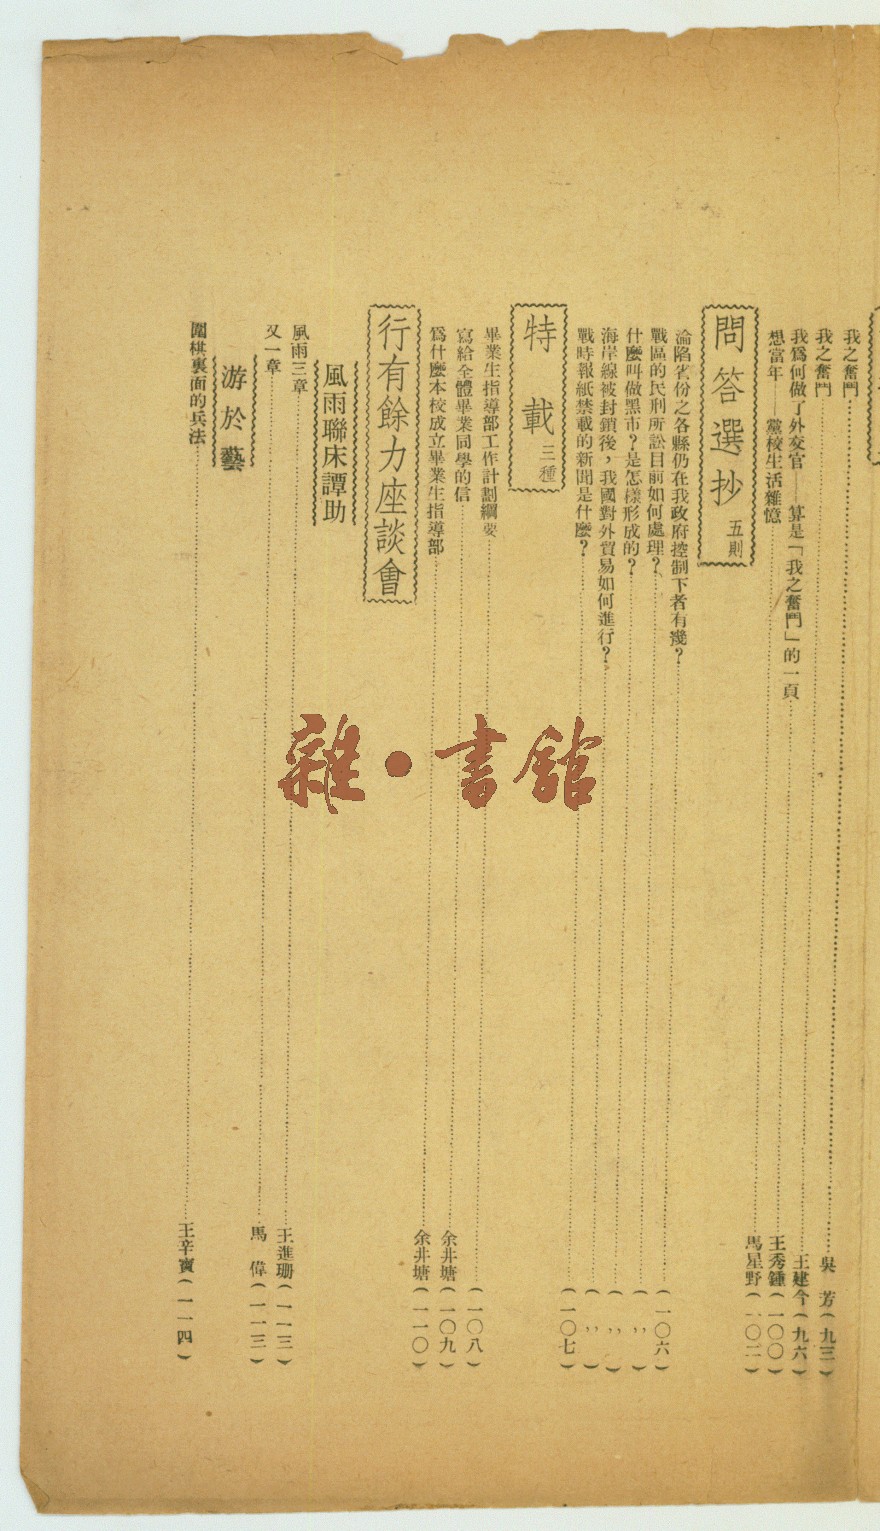 我之奮鬥……吳　芳(九三)
我之奮鬥……王建今(九六)
我爲何做了外交官——算是「我之奮鬥」的一頁……王秀鍾(一〇〇)
想當年——黨校生活雜憶……馬星野(一〇二)
問答選抄 五則
淪陷省份之各縣仍在我政府控制下者有幾?……(一〇六)
戰區的民刑所訟目前如何處理?……(,,)
什麼叫做黑市?是怎樣形成的?……(,,)
海岸線被封鎖後,我國對外貿易如何進行?……(,,)
戰時報紙禁載的新聞是什麼?……(一〇七)
特載 三種
畢業生指導部工作計劃綱要……(一〇八)
寫給全體畢業同學的信……余井塘(一〇九)
爲什麼本校成立畢業生指導部……余井塘(一一〇)
行有餘力座談會
風雨聯床譚助
風雨三章……王進珊(一一三)
又一章……馬　偉(一一三)
游於藝
圍棋裏面的兵法……王辛寶(一一四)
雜·書館